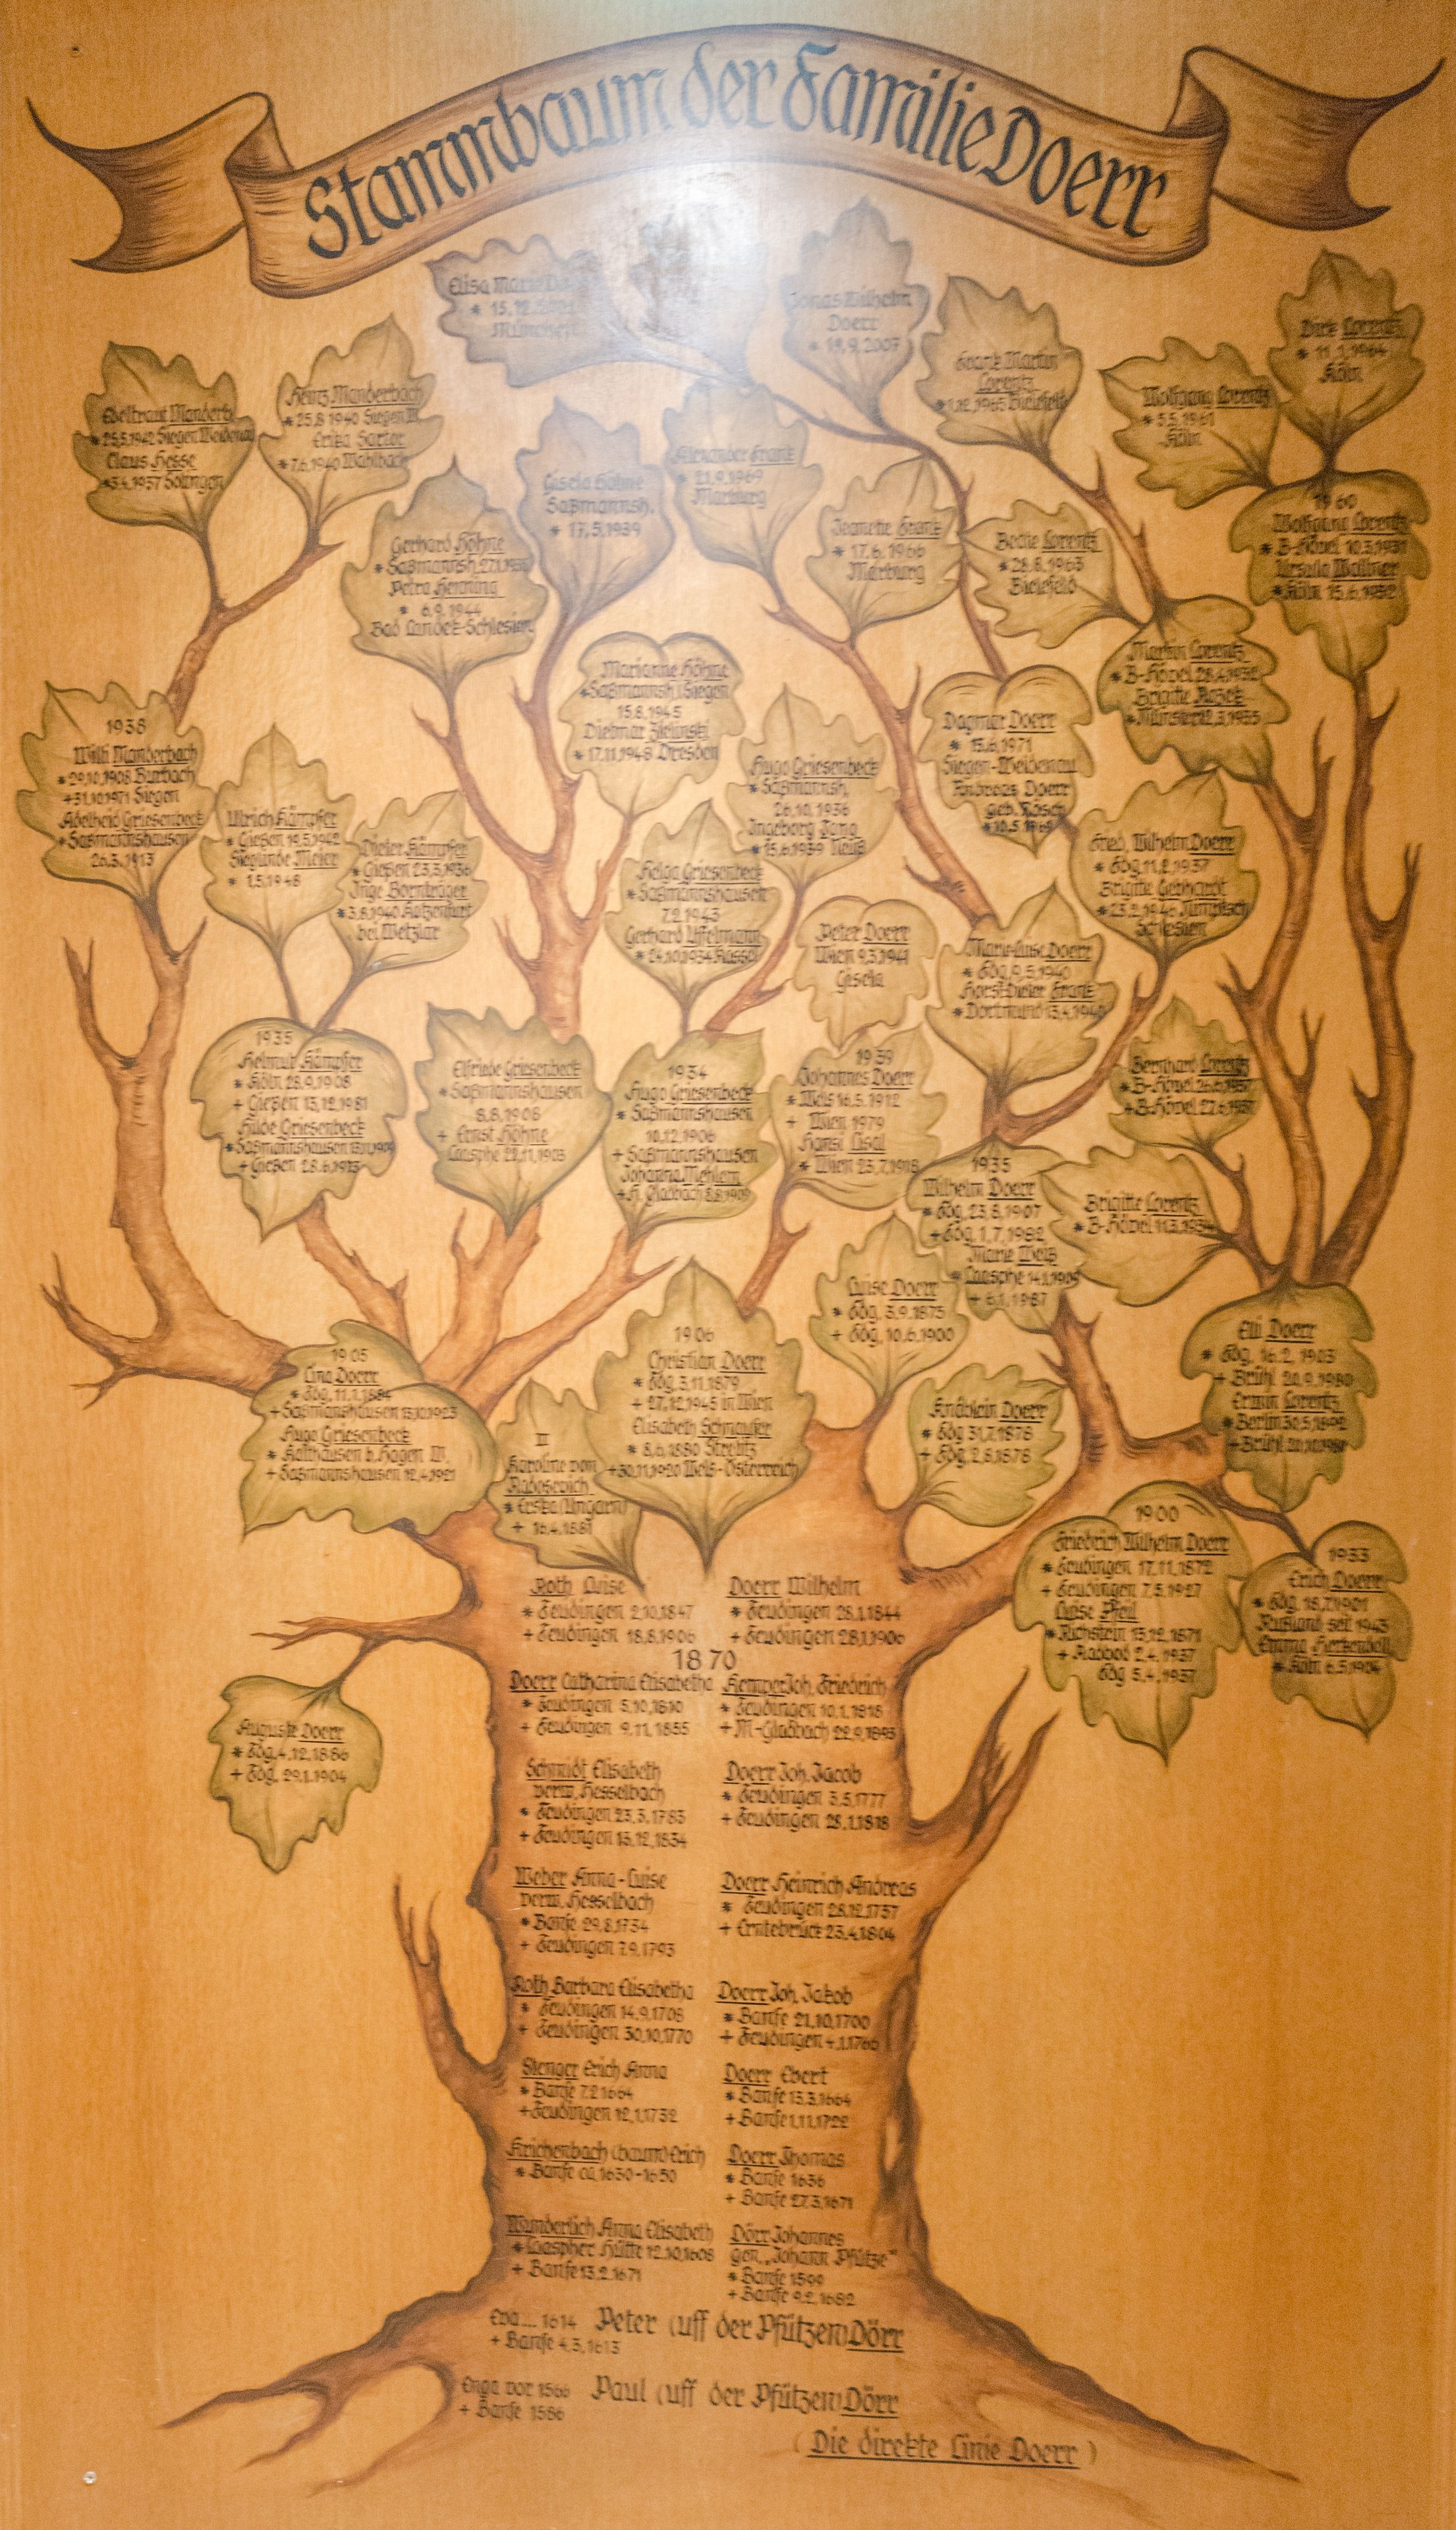 Stammbaum der Familie Doerr
Elisa Marie
* 15.12.
München
Jonas Wilhelm
Doerr
* 19.9.2007
Frank Martin
Lorentz
*1.12.1965 Bielefeld
Wolfgang Lorentz
* 5.5.1961
Köln
Dirk Lorentz
* 11.1.1964
Köln
Edeltraut Manderb.
*25.5.1942 Siegen Weidenau
Claus Hesse
*3.4.1937 Solingen
Heinz Manderbach
*25.8.1940 Siegen
Erika Sartor
*7.6.1940 Wahlbach
Gerhard Höhne
* Saßmannsh.
Petra Henning
* 6.9.1944
Bad Landek-Schlesien
Gisela Höhne
Saßmannsh.
* 17.5.1939
Alexander Frank
* 21.9.1969
Marburg
Jeanette Frank
* 17.6.1966
Marburg
Beate Lorentz
* 28.8.1963
Bielefeld
1960
Wolfgang Lorentz
* B-Hövel 10.3.1931
Ursula Wallner
*Köln 15.6.1932
Martin Lorentz
* B-Hövel 28.4.1932
Brigitte
*Münster 12.3.1935
Marianne Höhne
*Saßmannsh./Siegen
15.8.1945
Dietmar Zielinski
* 17.11.1948 Dresden
Dagmar Doerr
* 15.6.1971
Siegen-Weidenau
Andreas Doerr
geb. Rösch
*10.5.1969
Hugo Griesenbeck
* Saßmannsh.
26.10.1936
Ingeborg Jung
*15.6.1939 Neuß
1938
Willi Manderbach
*29.10.1908 Burbach
+31.10.1971 Siegen
Adelheid Griesenbeck
* Saßmannshausen
26.3.1913
Ulrich Kämpfer
* Gießen 19.5.1942
Sieglinde Meier
* 1.5.1948
Dieter Kämpfer
* Gießen 23.3.1936
Inge Bornträger
*3.8.1940 Katzenfurt
bei Wetzlar
Helga Griesenbeck
* Saßmannshausen
7.2.1943
Gerhard Uffelmann
* 24.10.1934 Kassel
Fried. Wilhelm Doerr
* Fdg. 11.2.1937
Brigitte Gebhardt
*23.2.1946 Nimptsch
Schlesien
Peter Doerr
Wien 9.3.1941
Gisela
Marie-Luise Doerr
* Fdg. 9.5.1940
Horst-Dieter Frank
*Dortmund 13.4.1940
1935
Helmut Kämpfer
* Köln 28.9.1908
+ Gießen 13.12.1981
Hilde Griesenbeck
*Saßmannshausen 13.11.1909
+ Gießen 28.6.1973
Elfriede Griesenbeck
* Saßmannshausen
8.8.1908
+ Ernst Höhne
Laasphe 22.11.1903
1934
Hugo Griesenbeck
* Saßmannshausen
10.12.1906
+ Saßmannshausen
Johanna Mehlem
+M. Gladbach 8.8.1909
1939
Johannes Doerr
* Wels 16.5.1912
+ Wien 1979
Hansi Lisal
* Wien 23.7.1918
Bernhard Lorentz
* B-Hövel 26.6.1937
+ B-Hövel 27.6.1937
1935
Wilhelm Doerr
* Fdg. 23.8.1907
+Fdg. 1.7.1982
Marie Weiß
*Laasphe 14.1.1909
+ 6.1.1987
Brigitte Lorentz
* B-Hövel 11.3.1934
Luise Doerr
* Fdg. 3.9.1875
+ Fdg. 10.6.1900
Elli Doerr
* Fdg. 16.2.1903
+ Brühl 20.9.1980
Erwin Lorentz
*Berlin 30.5.1892
+Brühl
1905
Lina Doerr
* Fdg. 11.1.1884
+Saßmannshausen 13.10.1923
Hugo Griesenbeck
* Kalthausen b. Hagen W.
+ Saßmannshausen 12.4.1921
1906
Christian Doerr
* Fdg. 3.11.1879
+ 27.12.1945 in Wien
Elisabeth Schnaufer
* 8.6.1880 Strelitz
+30.11.1920 Wels-Österreich
II
Karoline von
Radosevich
* Erska (Ungarn)
+ 16.4.1881
Knäblein Doerr
* Fdg 31.7.1878
+ Fdg. 2.8.1878
1900
Friedrich Wilhelm Doerr
* Feudingen 17.11.1872
+ Feudingen 7.5.1927
Luise Pfeil
*Richstein 15.12.1871
+ Radbod 2.4.1937
Fdg 5.4.1937
1933
Erich Doerr
* Fdg. 18.7.1901
Rußland seit 1943
Emma Herkenbell
* Köln 6.5.1904
Roth Luise
* Feudingen 2.10.1847
+ Feudingen 18.8.1906
Doerr Wilhelm
* Feudingen 28.1.1844
+ Feudingen 28.1.1906
1870
Doerr Catharina Elisabetha
* Feudingen 5.10.1810
+ Feudingen 9.11.1855
Kemper Joh. Friedrich
* Feudingen 10.1.1818
+M-Gladbach 22.9.1893
Auguste Doerr
* Fdg. 4.12.1886
+ Fdg. 29.1.1904
Schmidt Elisabeth
verw. Hesselbach
* Feudingen 23.3.1783
+ Feudingen 13.12.1834
Doerr Joh. Jacob
* Feudingen 3.5.1777
+ Feudingen 28.1.1818
Weber Anna-Luise
verw. Hesselbach
* Banfe 29.8.1734
+ Feudingen 7.9.1793
Doerr Heinrich Andreas
* Feudingen 28.12.1737
+ Erntebrück 23.4.1804
Roth Barbara Elisabetha
* Feudingen 14.9.1708
+ Feudingen 30.10.1770
Doerr Joh. Jakob
* Banfe 21.10.1700
+ Feudingen 4.1.1766
Stenger Erich Anna
* Banfe 7.2.1664
+Feudingen 12.1.1732
Doerr Ebert
* Banfe 13.3.1664
+ Banfe 1.11.1722
Krichenbach (baum) Erich
* Banfe ca. 1630-1650
Doerr Thomas
* Banfe 1636
+ Banfe 27.3.1671
Wunderlich Anna Elisabeth
*Laaspher Hütte 12.10.1608
+ Banfe 13.2.1671
Dörr Johannes
gen. „Johann Pfütze"
* Banfe 1599
+ Banfe 9.2.1682
Eva... 1614 Peter (uff der Pfützen) Dörr
+ Banfe 4.3.1613
Enga vor 1566 Paul (uff der Pfützen) Dörr
+ Banfe 1586
(Die direkte Linie Doerr)